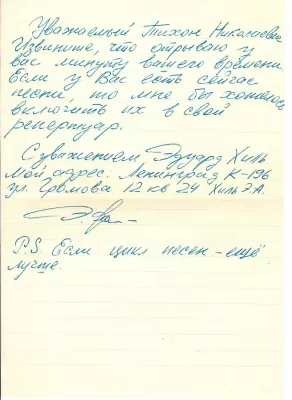 Уважаемый Тихон Николаевич
Извините, что отрываю у
вас минуту вашего времени.
Если у Вас есть сейчас
песни, то мне бы хотелось
включить их в свой
репертуар.
С уважением Эдуард Хиль
Мой адрес. Ленинград К-196
ул. Громова 12 кв 24 Хиль Э.А.
P.S. Если цикл песен - ещё
лучше.